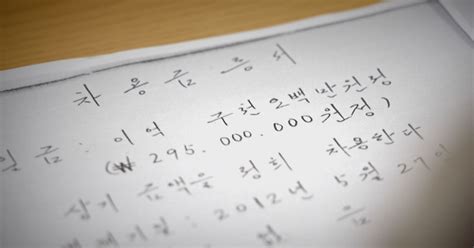 차 용 금 증 서
일 금 : 이 억 구천 오백 만원정
(₩ 295. 000. 000 원정)
상기 금액을 정히 차용한다
2012년 5월 27일
음